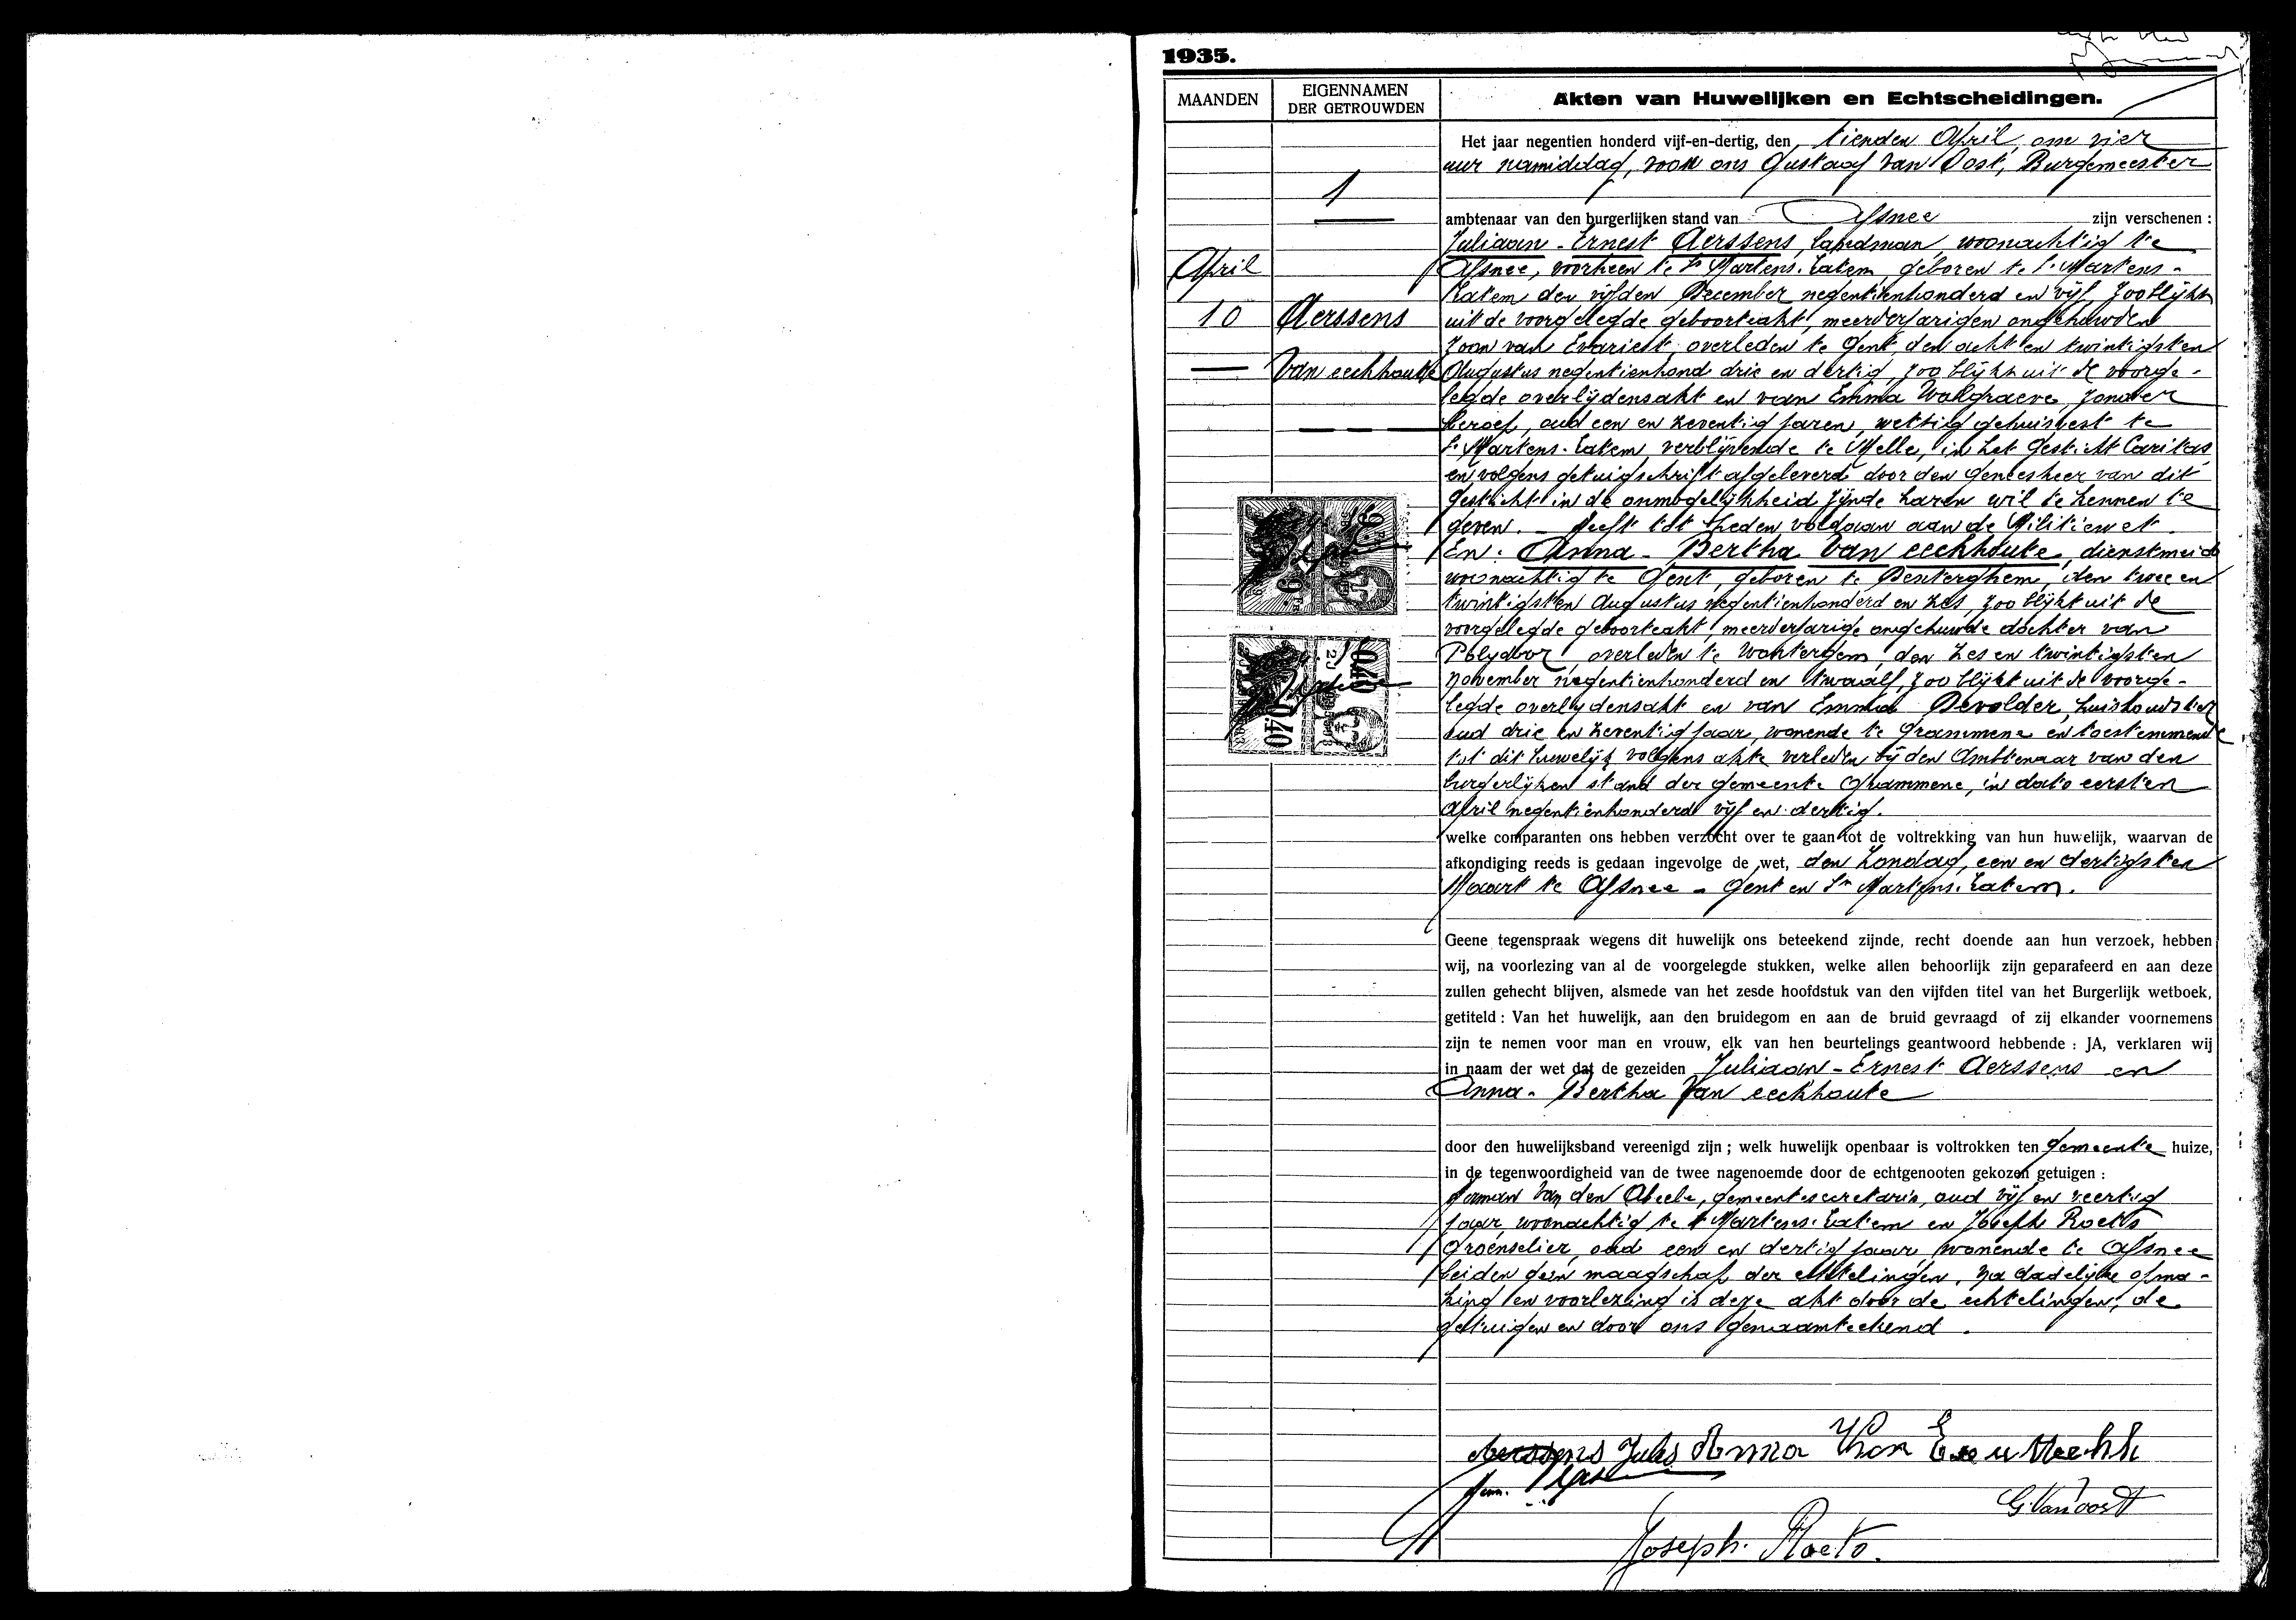 1935.
MAANDEN
EIGENNAMEN
DER GETROUWDEN
Akten van Huwelijken en Echtscheidingen.
1
April
10
Aerssens
Van eeckhoutte
Het jaar negentien honderd vijf-en-dertig, den tienden April, om vier
uur namiddag, voor ons Gustaaf Van Oost, Burgemeester
ambtenaar van den burgerlijken stand van Afsnee zijn verschenen :
Juliaan - Ernest Aerssens, landman, woonachtig te
Afsnee, voorheen te St Martens-Latem, geboren te St Martens-
Latem den vijfden December negentienhonderd en vijf, zoo blijkt
uit de voorgelegde geboorteakt, meerderjarigen ongehuwden
zoon van Evariest, overleden te Gent, den acht en twintigsten
Augustus negentienhond drie en dertig, zoo blijkt uit de voorge-
legde overlijdensakt en van Emma Walgraeve, zonder
beroep, oud een en zeventig jaren, wettig gehuisvest te
St Martens-Latem, verblijvende te Melle, in het Gesticht Caritas
en volgens getuigschrift afgeleverd door den Geneesheer van dit
Gesticht in de onmogelijkheid zijnde haren wil te kennen te
geven. - Heeft tot heden voldaan aan de Militiewet.
En. Anna - Bertha Van eeckhoute, dienstmeid
woonachtig te Gent, geboren te Denterghem, den twee en
twintigsten Augustus negentienhonderd en zes, zoo blijkt uit de
voorgelegde geboorteakt, meerderjarige ongehuwde dochter van
Polydoor, overleden te Wontergem, den zes en twintigsten
November negentienhonderd en twaalf, zoo blijkt uit de voorge-
legde overlijdensakt en van Emma Devolder, huishoudster
oud drie en zeventig jaar, wonende te Grammene en toestemmende
tot dit huwelijk volgens akte verleden bij den Ambtenaar van den
burgerlijken stand der gemeente Grammene, in dato eersten
April negentienhonderd vijf en dertig.
welke comparanten ons hebben verzocht over te gaan tot de voltrekking van hun huwelijk, waarvan de
afkondiging reeds is gedaan ingevolge de wet, den Zondag, een en dertigsten
Maart te Afsnee - Gent en St Martens-Latem.
Geene tegenspraak wegens dit huwelijk ons beteekend zijnde, recht doende aan hun verzoek, hebben
wij, na voorlezing van al de voorgelegde stukken, welke allen behoorlijk zijn geparafeerd en aan deze
zullen gehecht blijven, alsmede van het zesde hoofdstuk van den vijfden titel van het Burgerlijk wetboek,
getiteld : Van het huwelijk, aan den bruidegom en aan de bruid gevraagd of zij elkander voornemens
zijn te nemen voor man en vrouw, elk van hen beurtelings geantwoord hebbende : JA, verklaren wij
in naam der wet dat de gezeiden Juliaan - Ernest Aerssens en
Anna - Bertha Van eeckhoute
door den huwelijksband vereenigd zijn ; welk huwelijk openbaar is voltrokken ten gemeente huize,
in de tegenwoordigheid van de twee nagenoemde door de echtgenooten gekozen getuigen :
Van den Abeele, gemeentesecretaris, oud vijf en veertig
jaar, woonachtig te St Martens-Latem en Joseph Roets
Groenselier, oud een en dertig jaar, wonende te Afsnee
beiden geen maagschap der echtelingen. Na dadelijke opma-
king en voorlezing is deze akt door de echtelingen, de
getuigen en door ons genaamteekend.
Aerssens Jules Anna Van
G. Van Oost
Joseph. Roets.